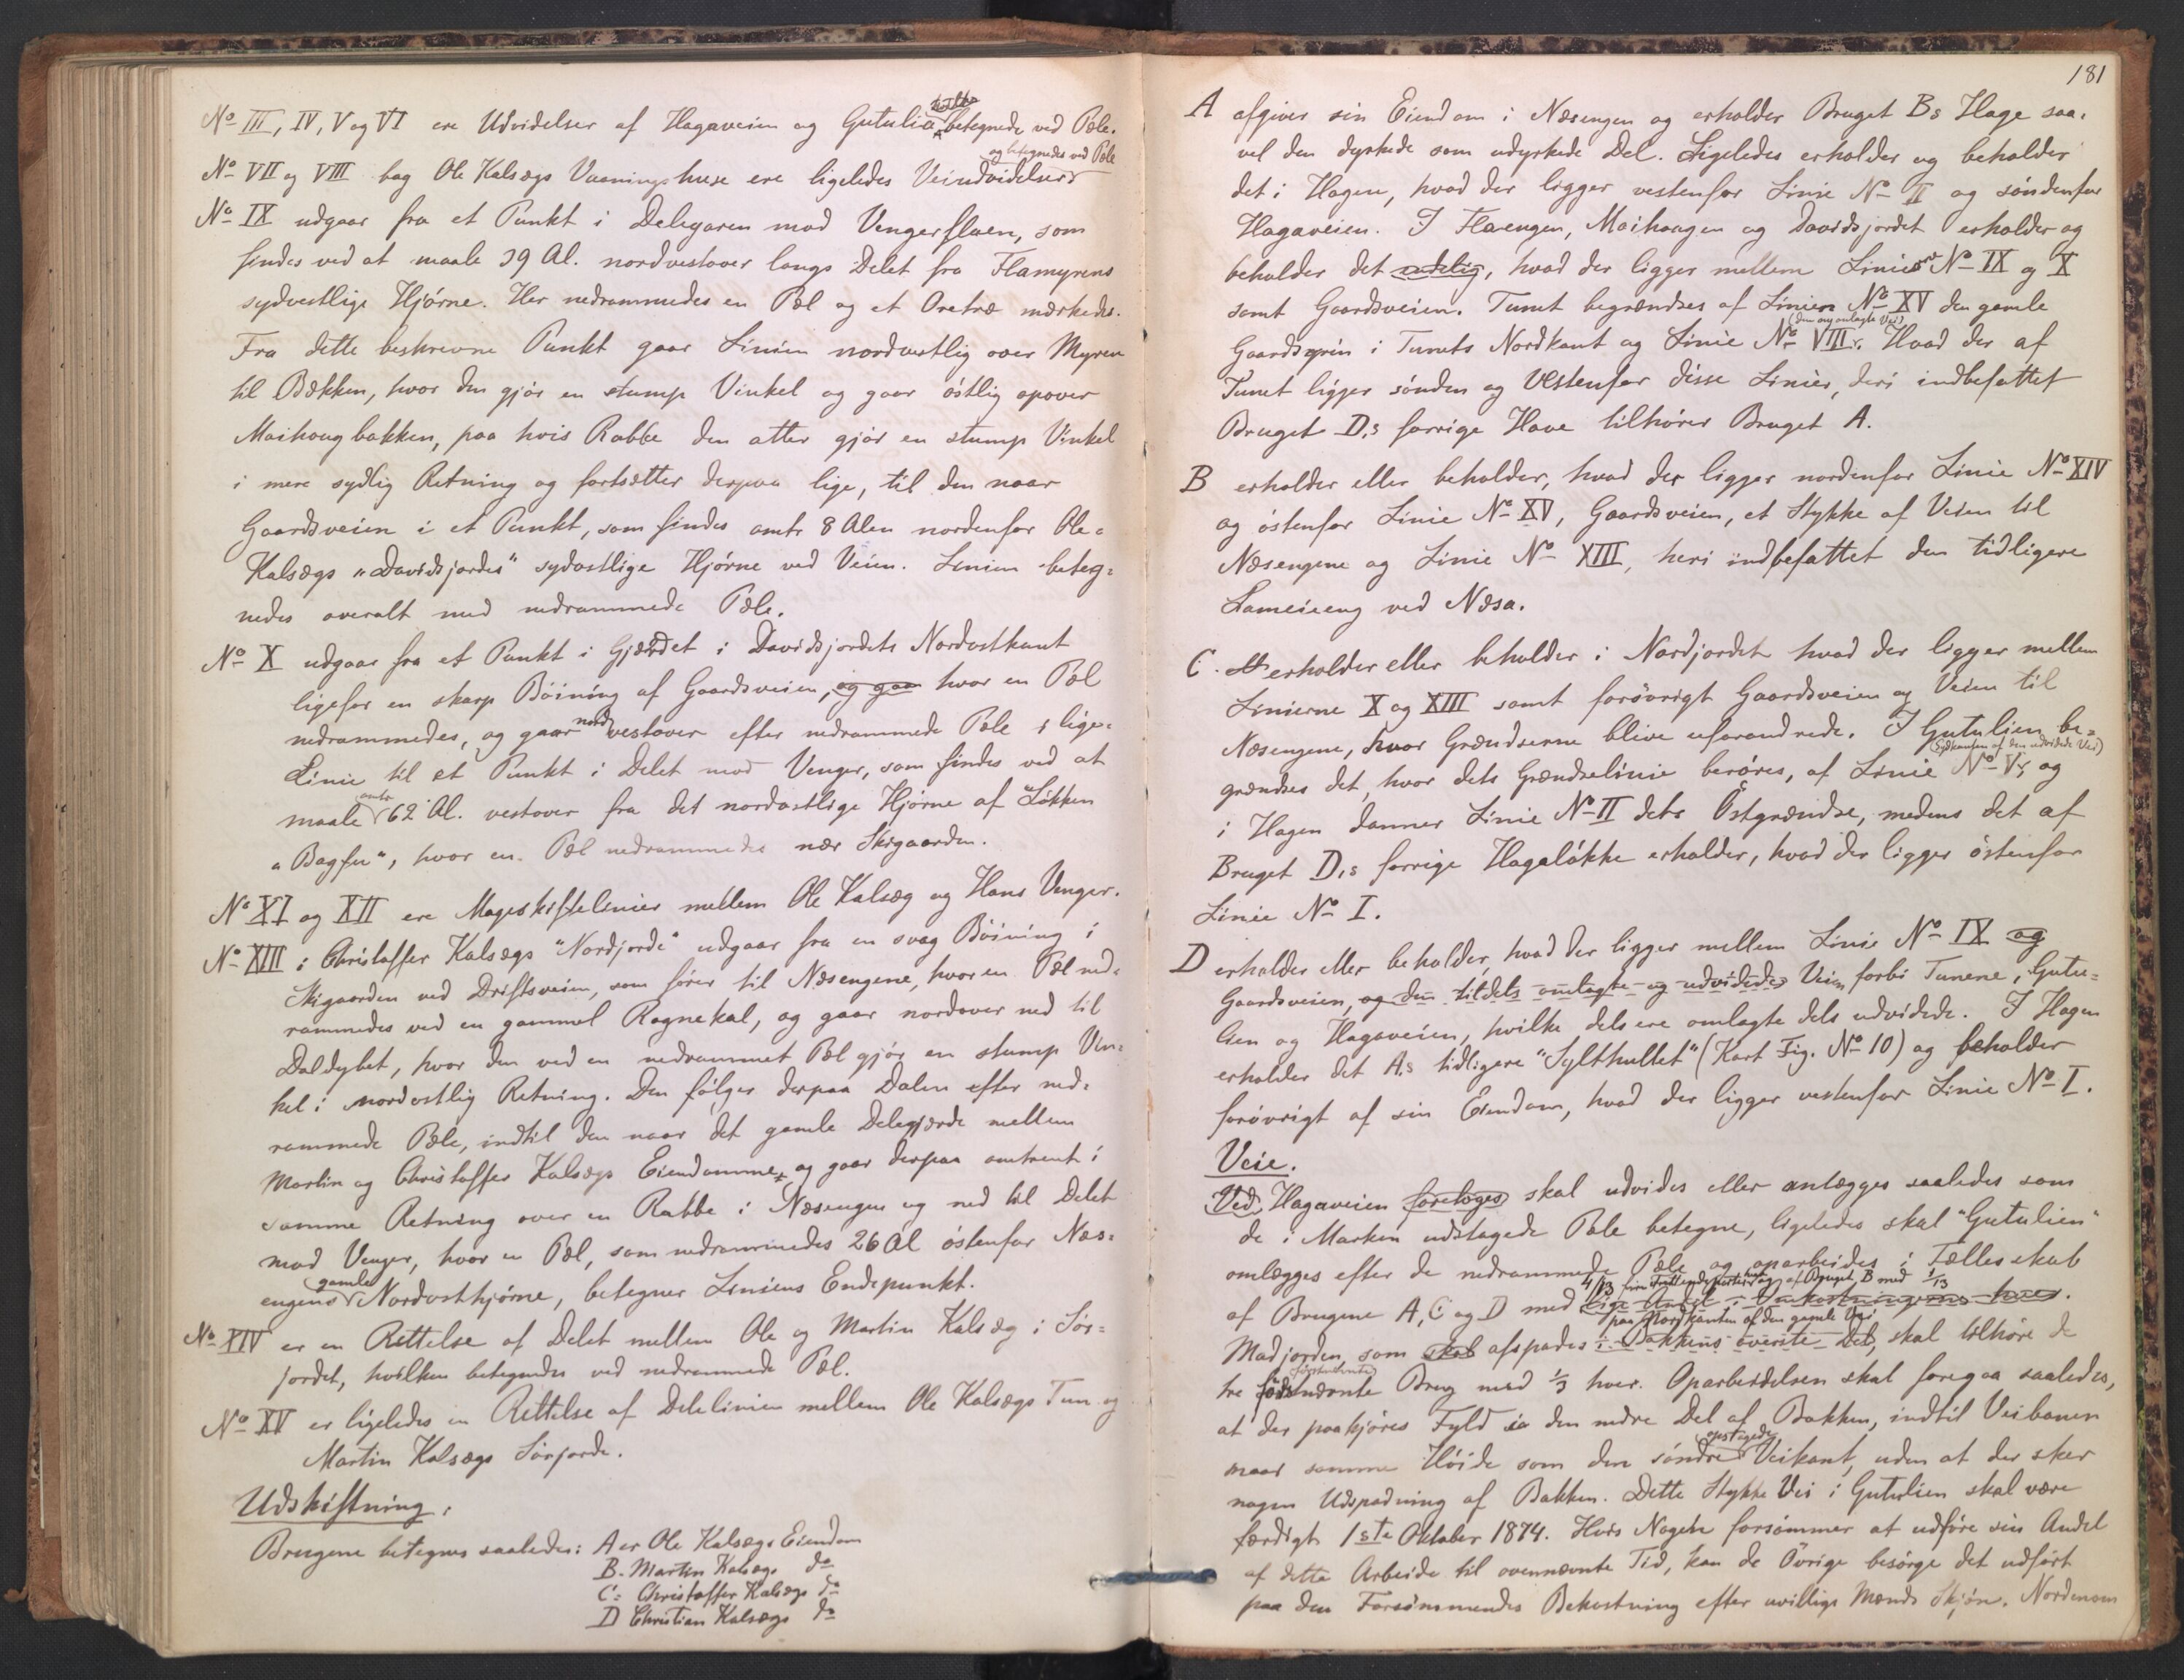 No III, IV, V og VI ere Udvidelser af Hagaveien og Gutulia hvilke betegnede ved Pæle.
No VII og VIII bag Ole Kalsægs Vaaningshuse ere ligeledes Veiudvidelser og betegnedes ved Pæle
No IX udgaar fra et Punkt i Delegaren mod Vengerflaen, som
findes ved at maale 39 Al. nordvestover langs Delet fra Flamyrens
sydvestlige Hjörne. Her nedrammedes en Pæl og et Oretræ mærkedes.
Fra dette beskrevne Punkt gaar Linien nordostlig over Myren
til Bækken, hvor den gjör en stump Vinkel og gaar östlig opover
Maihougbakken, paa hvis Rabbe den atter gjör en stump Vinkel
i mere sydlig Retning og fortsætter derpaa lige, til den naar
Gaardsveien i et Punkt, som findes omtr 8 Alen nordenfor Ole
Kalsægs "Davidsjordes" sydostlige Hjörne ved Veien. Linien beteg=
nedes overalt med nedrammede Pæle.
No X udgaar fra et Punkt i Gjærdet i Davidsjordets Nordostkant
ligefor en skarp Böining af Gaardsveien, og gaar hvor en Pæl
nedrammedes, og gaar nordvestover efter nedrammede Pæle i lige
Linie til et Punkt i Delet mod Venger, som findes ved at
maale omtr 62 Al. vestover fra det nordostlige Hjörne af Lökken
"Bagfor", hvor en Pæl nedrammedes nær Skigaarden.
No XI og XII ere Mageskiftelinier mellem Ole Kalsæg og Hans Venger.
No XIII i Christoffer Kalsægs "Nordjorde" udgaar fra en svag Böining i
Skigaarden ved Driftsveien, som förer til Næsengene, hvor en Pæl ned=
rammedes ved en gammel Ragnekal, og gaar nordover ned til
Daldybet, hvor den ved en nedrammet Pæl gjör en stump Vin=
kel i nordostlig Retning. Den fölger derpaa Dalen efter ned=
rammede Pæle, indtil den naar det gamle Delegjærde mellem
Martin og Christoffer Kalsægs Eiendomme, og gaar derpaa omtrent i
samme Retning over en Rabbe i Næsengen og ned til Delet
mod Venger, hvor en Pæl, som nedrammedes 26 Al östenfor Næs=
engens gamle Nordosthjörne, betegner Liniens Endepunkt.
No XIV er en Rettelse af Delet mellem Ole og Martin Kalsæg i Sör=
jordet, hvilken betegnedes ved nedrammede Pæl.
No XV er ligeledes en Rettelse af Delelinien mellem Ole Kalsægs Tun og
Martin Kalsægs Sörjorde.
Udskiftning.
Brugene betegnes saaledes: A er Ole Kalsægs Eiendom
B. Martin Kalsægs do
C= Christoffer Kalsægs do
D Christian Kalsægs do
181
A afgiver sin Eiendom i Næsengen og erholder Bruget Bs Hage saa=
vel den dyrkede som udyrkede Del. Ligeledes erholder og beholder
det i Hagen, hvad der ligger vestenfor Linie No II og söndenfor
Hagaveien. I Flaengen, Maihougen og Davidsjordet erholder og
beholder det endelig, hvad der ligger mellem Linierne No IX og X
samt Gaardsveien. Tunet begrændses af Linien No XV den gamle
Gaardsvei i Tunets Nordkant og Linie No VIII (den nye omlagte Vei). Hvad der af
Tunet ligger sönden og Vestenfor disse Linier, deri indbefattet
Bruget D,s forrige Have tilhörer Bruget A.
B erholder eller beholder, hvad der ligger nordenfor Linie No XIV
og östenfor Linie No XV, Gaardsveien, et Stykke af Veien til
Næsengene og Linie No XIII, heri indbefattet den tidligere
Sameieeng ved Næsa.
C. erholder eller beholder i Nordjordet hvad der ligger mellem
Linierne X og XIII samt forövrigt Gaardsveien og Veien til
Næsengene, hvor Grændserne blive uforandrede. I Gutulien be=
grændses det, hvor dets Grændselinie beröres, af Linie No V (Sydkanten af den udvidede Vei), og
i Hagen danner Linie No II dets Östgrændse, medens det af
Bruget D,s forrige Hagalökke erholder, hvad der ligger östenfor
Linie No I.
D erholder eller beholder, hvad der ligger mellem Linie No IX og
Gaardsveien, og den tildels omlagte og udvidede Veien forbi Tunene, Gutu=
lien og Hagaveien, hvilke dels ere omlagte dels udvidede. I Hagen
erholder det A,s tidligere "Sylthullet" (Kart Fig. No 10) og beholder
forövrigt af sin Eiendom, hvad der ligger vestenfor Linie No I.
Veie.
Ved Hagaveien foretages skal udvides eller anlægges saaledes som
de i Marken udstagede Pæle betegne, ligeledes skal "Gutulien"
omlægges efter de nedrammede Pæle og oparbeides i Fællesskab
af Brugene A, C og D med 4/13 fire Trettendeparter hver og af Bruget B med 1/13 lige Andel i Omkostningerne hver.
Madjorden, som skal afspades paa Nordkanten af den gamle Vei i Bakkens överste Del, skal tilhöre de
tre förstnævnte Brug med 1/3 hver. Oparbeidelsen skal foregaa saaledes,
at der paakjöres Fyld i den nedre Del af Bakken, indtil Veibanen
naar samme Höide som den söndre opstagede Veikant, uden at der sker
nogen Udspadning af Bakken. Dette Stykke Vei i Gutulien skal være
færdigt 1ste Oktober 1874. Hvis Nogen forsömmer at udföre sin Andel
af dette Arbeide til ovennævnte Tid, kan de Övrige besörge det udfört
paa den Forsömmendes Bekostning efter uvillige Mænds Skjön. Nordenom